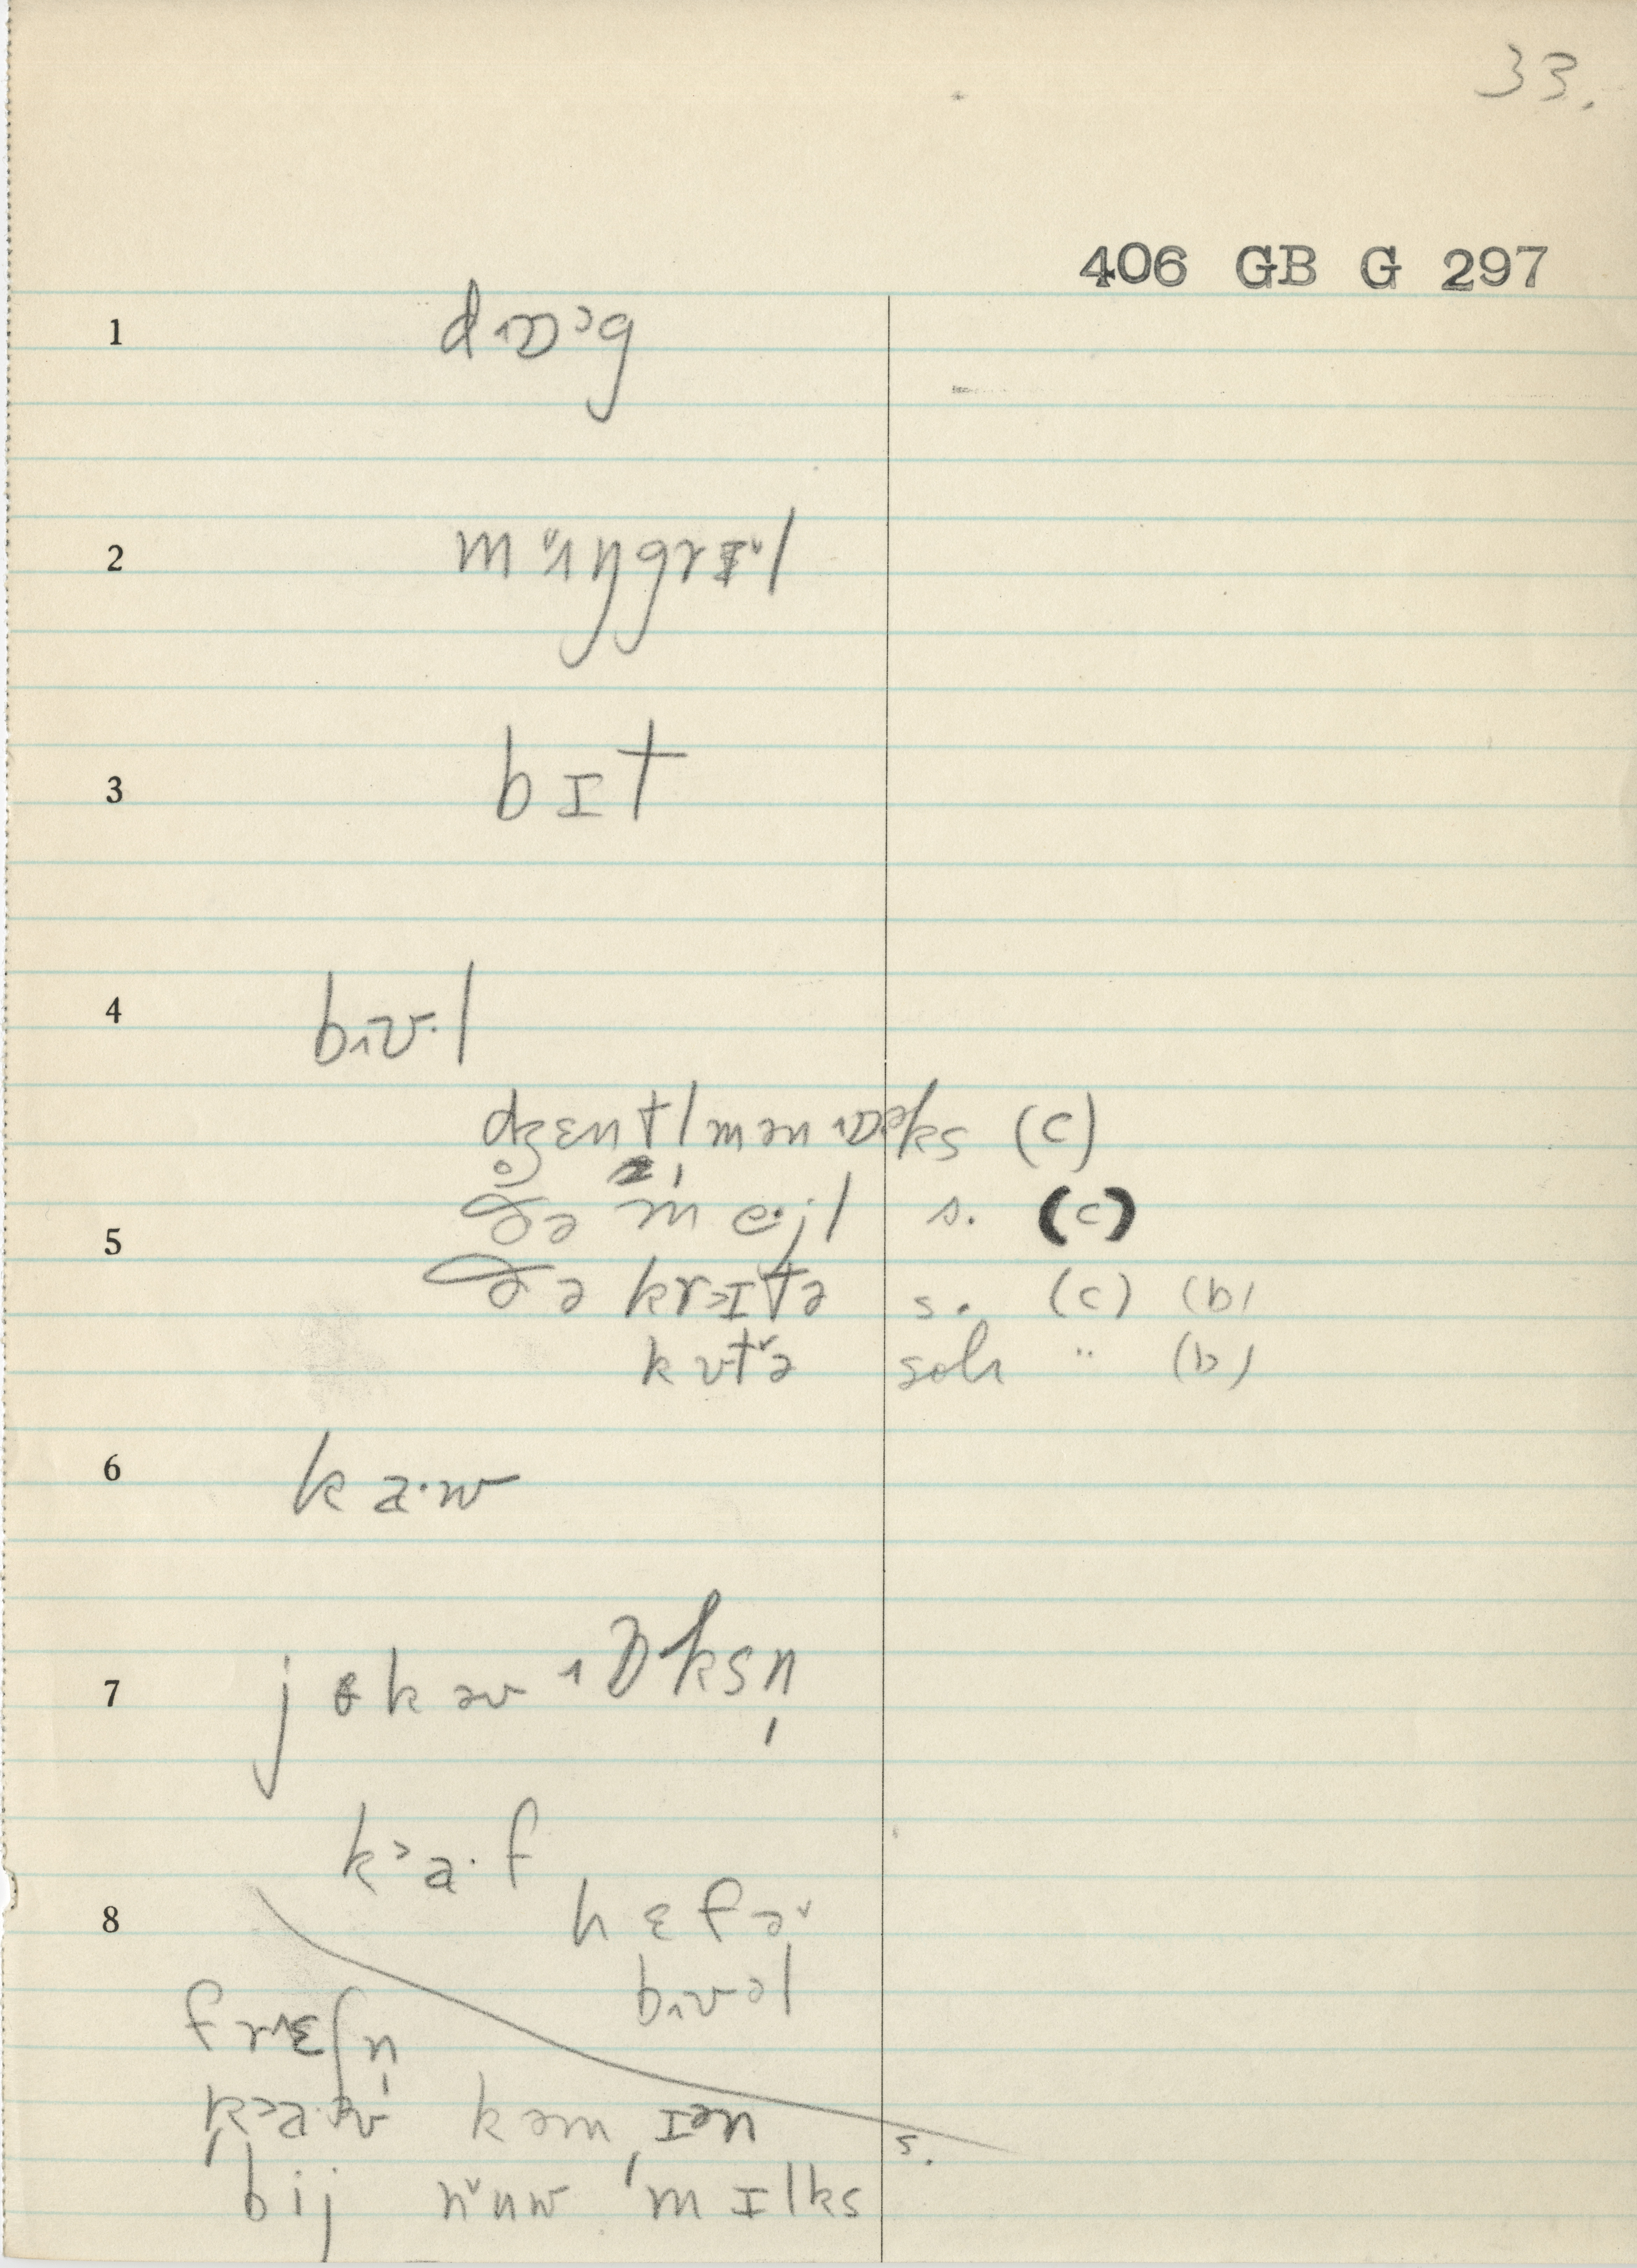 33.
406 GB G 297
1 d ɒ ɔg
2 m ʌŋgrɪ˅l
3 bɪt
4 bʊ·l
dʒentlmən ɒks (c)
5 ðə me·jl s. (c)
ðə krɪtə s. (c) (b)
kʊt˅ə " (b)
6 k a·w
7 j k əv ɒksn̩
k˃a·f
8 hɛfə˅
bʊəl
frɛʃn̩
ka·w kəm ɪən s.
bij nuw ˈmɪlks